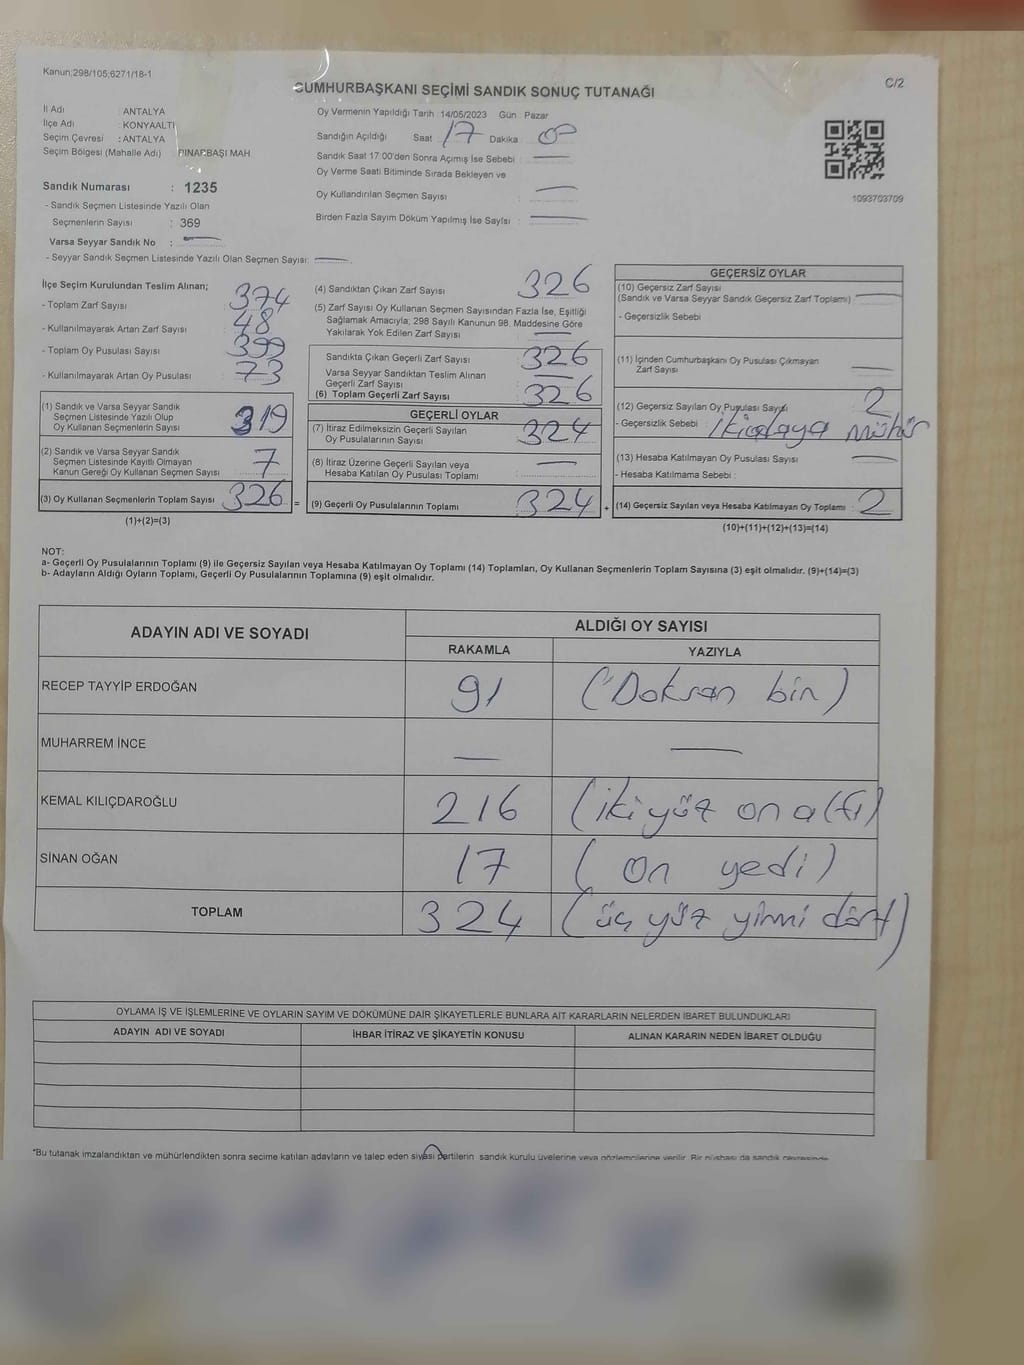 Kanun;298/105;6271/18-1
C/2
CUMHURBAŞKANI SEÇİMİ SANDIK SONUÇ TUTANAĞI
İl Adı : ANTALYA
İlçe Adı : KONYAALTI
Seçim Çevresi : ANTALYA
Seçim Bölgesi (Mahalle Adı) : PINARBAŞI MAH
Sandık Numarası : 1235
- Sandık Seçmen Listesinde Yazılı Olan
Seçmenlerin Sayısı : 369
Varsa Seyyar Sandık No : —
- Seyyar Sandık Seçmen Listesinde Yazılı Olan Seçmen Sayısı: —
Oy Vermenin Yapıldığı Tarih : 14/05/2023 Gün : Pazar
Sandığın Açıldığı Saat : 17 Dakika : 00
Sandık Saat 17:00'den Sonra Açımış İse Sebebi : —
Oy Verme Saati Bitiminde Sırada Bekleyen ve
Oy Kullandırılan Seçmen Sayısı : —
Birden Fazla Sayım Döküm Yapılmış İse Sayısı : —
1093703709
İlçe Seçim Kurulundan Teslim Alınan;
- Toplam Zarf Sayısı : 374
- Kullanılmayarak Artan Zarf Sayısı : 48
- Toplam Oy Pusulası Sayısı : 399
- Kullanılmayarak Artan Oy Pusulası : 73
(1) Sandık ve Varsa Seyyar Sandık
Seçmen Listesinde Yazılı Olup
Oy Kullanan Seçmenlerin Sayısı : 319
(2) Sandık ve Varsa Seyyar Sandık
Seçmen Listesinde Kayıtlı Olmayan
Kanun Gereği Oy Kullanan Seçmen Sayısı : 7
(3) Oy Kullanan Seçmenlerin Toplam Sayısı : 326
(1)+(2)=(3)
(4) Sandıktan Çıkan Zarf Sayısı : 326
(5) Zarf Sayısı Oy Kullanan Seçmen Sayısından Fazla İse, Eşitliği
Sağlamak Amacıyla; 298 Sayılı Kanunun 98. Maddesine Göre
Yakılarak Yok Edilen Zarf Sayısı : —
Sandıkta Çıkan Geçerli Zarf Sayısı : 326
Varsa Seyyar Sandıktan Teslim Alınan
Geçerli Zarf Sayısı : —
(6) Toplam Geçerli Zarf Sayısı : 326
GEÇERLİ OYLAR
(7) İtiraz Edilmeksizin Geçerli Sayılan
Oy Pusulalarının Sayısı : 324
(8) İtiraz Üzerine Geçerli Sayılan veya
Hesaba Katılan Oy Pusulası Toplamı : —
= (9) Geçerli Oy Pusulalarının Toplamı : 324
GEÇERSİZ OYLAR
(10) Geçersiz Zarf Sayısı
(Sandık ve Varsa Seyyar Sandık Geçersiz Zarf Toplamı) : —
- Geçersizlik Sebebi :
(11) İçinden Cumhurbaşkanı Oy Pusulası Çıkmayan
Zarf Sayısı : —
(12) Geçersiz Sayılan Oy Pusulası Sayısı : 2
- Geçersizlik Sebebi : iki adaya mühür
(13) Hesaba Katılmayan Oy Pusulası Sayısı : —
- Hesaba Katılmama Sebebi :
+ (14) Geçersiz Sayılan veya Hesaba Katılmayan Oy Toplamı : 2
(10)+(11)+(12)+(13)=(14)
NOT:
a- Geçerli Oy Pusulalarının Toplamı (9) ile Geçersiz Sayılan veya Hesaba Katılmayan Oy Toplamı (14) Toplamları, Oy Kullanan Seçmenlerin Toplam Sayısına (3) eşit olmalıdır. (9)+(14)=(3)
b- Adayların Aldığı Oyların Toplamı, Geçerli Oy Pusulalarının Toplamına (9) eşit olmalıdır.
ADAYIN ADI VE SOYADI ALDIĞI OY SAYISI
RAKAMLA YAZIYLA
RECEP TAYYİP ERDOĞAN 91 (Doksan bin)
MUHARREM İNCE — —
KEMAL KILIÇDAROĞLU 216 (iki yüz on altı)
SİNAN OĞAN 17 (on yedi)
TOPLAM 324 (üç yüz yirmi dört)
OYLAMA İŞ VE İŞLEMLERİNE VE OYLARIN SAYIM VE DÖKÜMÜNE DAİR ŞİKAYETLERLE BUNLARA AİT KARARLARIN NELERDEN İBARET BULUNDUKLARI
ADAYIN ADI VE SOYADI İHBAR İTİRAZ VE ŞİKAYETİN KONUSU ALINAN KARARIN NEDEN İBARET OLDUĞU
*Bu tutanak imzalandıktan ve mühürlendikten sonra seçime katılan adayların ve talep eden siyasi partilerin sandık kurulu üyelerine veya gözlemcilerine verilir. Bir nüshası da sandık çevresinde